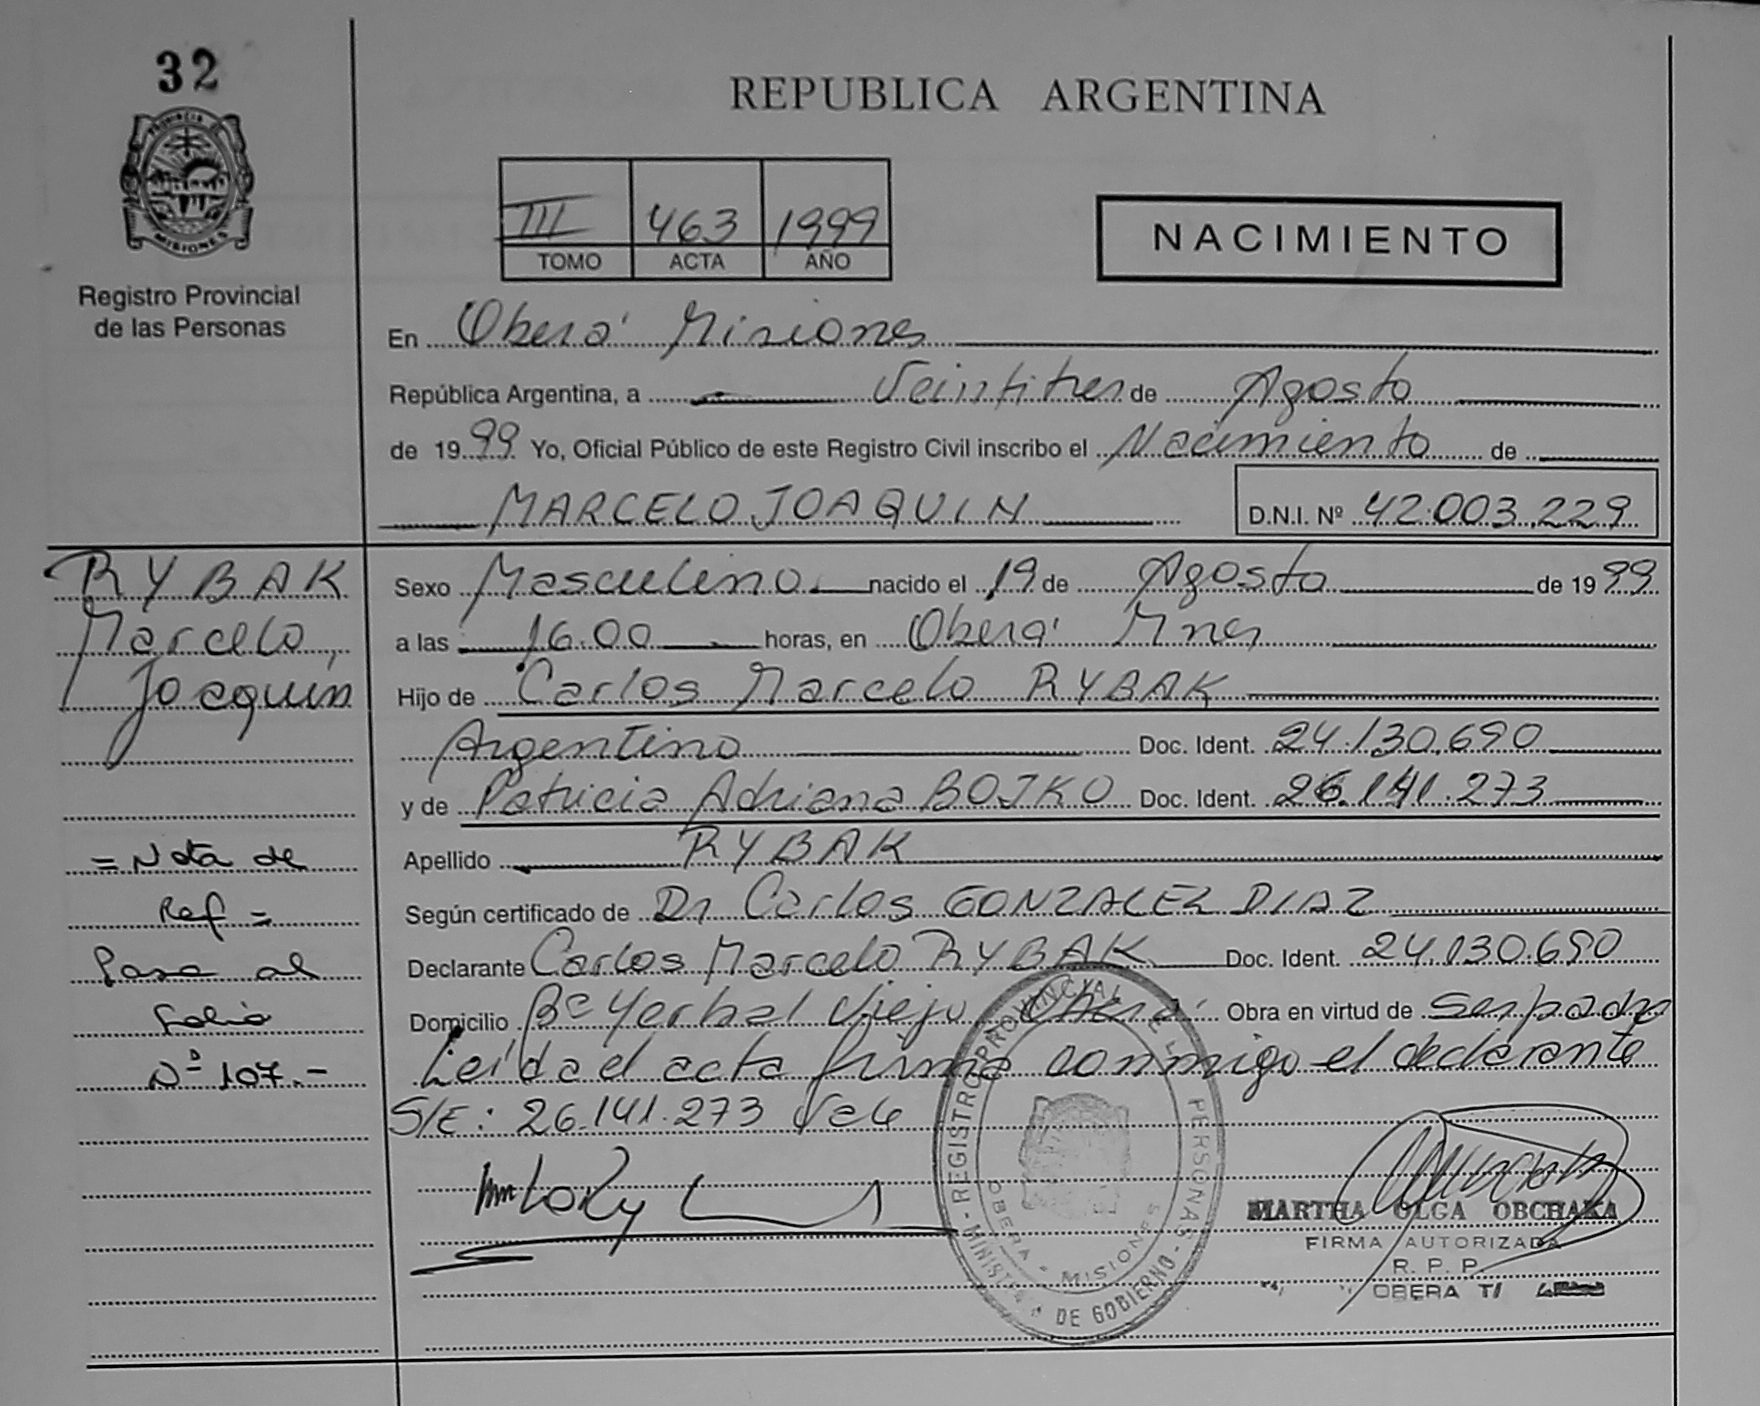 32
REPUBLICA ARGENTINA
PROVINCIA DE
MISIONES
Registro Provincial
de las Personas
III 463 1999
TOMO ACTA AÑO
NACIMIENTO
En Oberá Misiones
República Argentina, a Veintitres de Agosto
de 1999 Yo, Oficial Público de este Registro Civil inscribo el Nacimiento de
MARCELO JOAQUIN
D.N.I. Nº 42.003.229
RYBAK
Marcelo,
Joaquin
Sexo Masculino nacido el 19 de Agosto de 1999
a las 16.00 horas, en Oberá Mnes
Hijo de Carlos Marcelo RYBAK
Argentino Doc. Ident. 24.130.690
y de Patricia Adriana BOJKO Doc. Ident. 26.141.273
Apellido RYBAK
Según certificado de Dr Carlos GONZALEZ DIAZ
Declarante Carlos Marcelo RYBAK Doc. Ident. 24.130.690
Domicilio Bº Yerbal Viejo Oberá Obra en virtud de ser padre
Leida el acta firma conmigo el declarante
S/E: 26.141.273 Vale
= Nota de
Ref =
Pasa al
folio
Nº 107.-
REGISTRO PROVINCIAL DE LAS PERSONAS
OBERA - MISIONES
DE GOBIERNO
MARTHA OLGA OBCHAKA
FIRMA AUTORIZADA
R. P. P.
OBERA T/